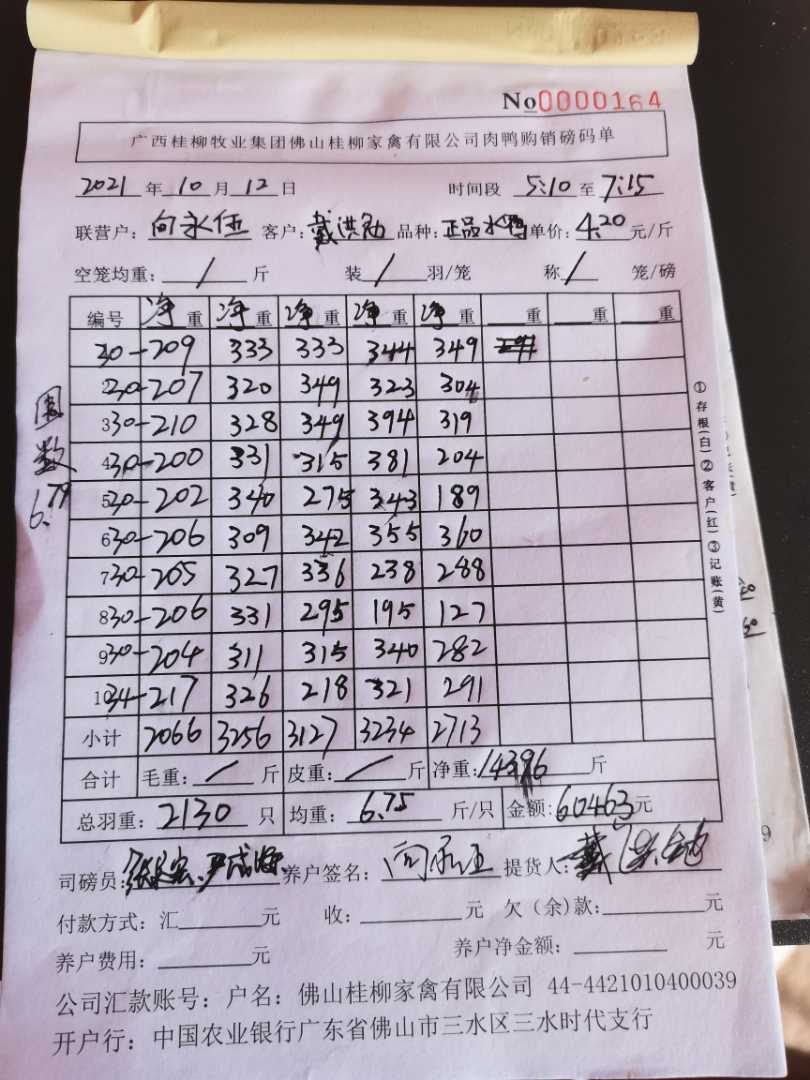 No0000164
广西桂柳牧业集团佛山桂柳家禽有限公司肉鸭购销磅码单
2021 年 10 月 12 日 时间段 5:10 至 7:15
联营户: 向永伍 客户: 戴洪勋 品种: 正品水鸭 单价: 4.20 元/斤
空笼均重: / 斤 装 / 羽/笼 称 / 笼/磅
编号 净重 净重 净重 净重 净重 重 重 重
1 30-209 333 333 344 349
2 30-207 320 349 323 304
3 30-210 328 349 394 319
4 30-200 331 315 381 204
5 30-202 340 275 343 189
6 30-206 309 342 355 360
7 30-205 327 336 238 288
8 30-206 331 295 195 127
9 30-204 311 315 340 282
10 34-217 326 218 321 291
小计 2066 3256 3127 3234 2713
合计 毛重: / 斤 皮重: / 斤 净重: 14396 斤
总羽重: 2130 只 均重: 6.75 斤/只 金额: 60463 元
司磅员: 养户签名: 向永伍 提货人: 戴
付款方式: 汇 元 收: 元 欠(余)款: 元
养户费用: 元 养户净金额: 元
公司汇款账号: 户名: 佛山桂柳家禽有限公司 44-4421010400039
开户行: 中国农业银行广东省佛山市三水区三水时代支行
数
6.79
①存根(白)②客户(红)③记账(黄)